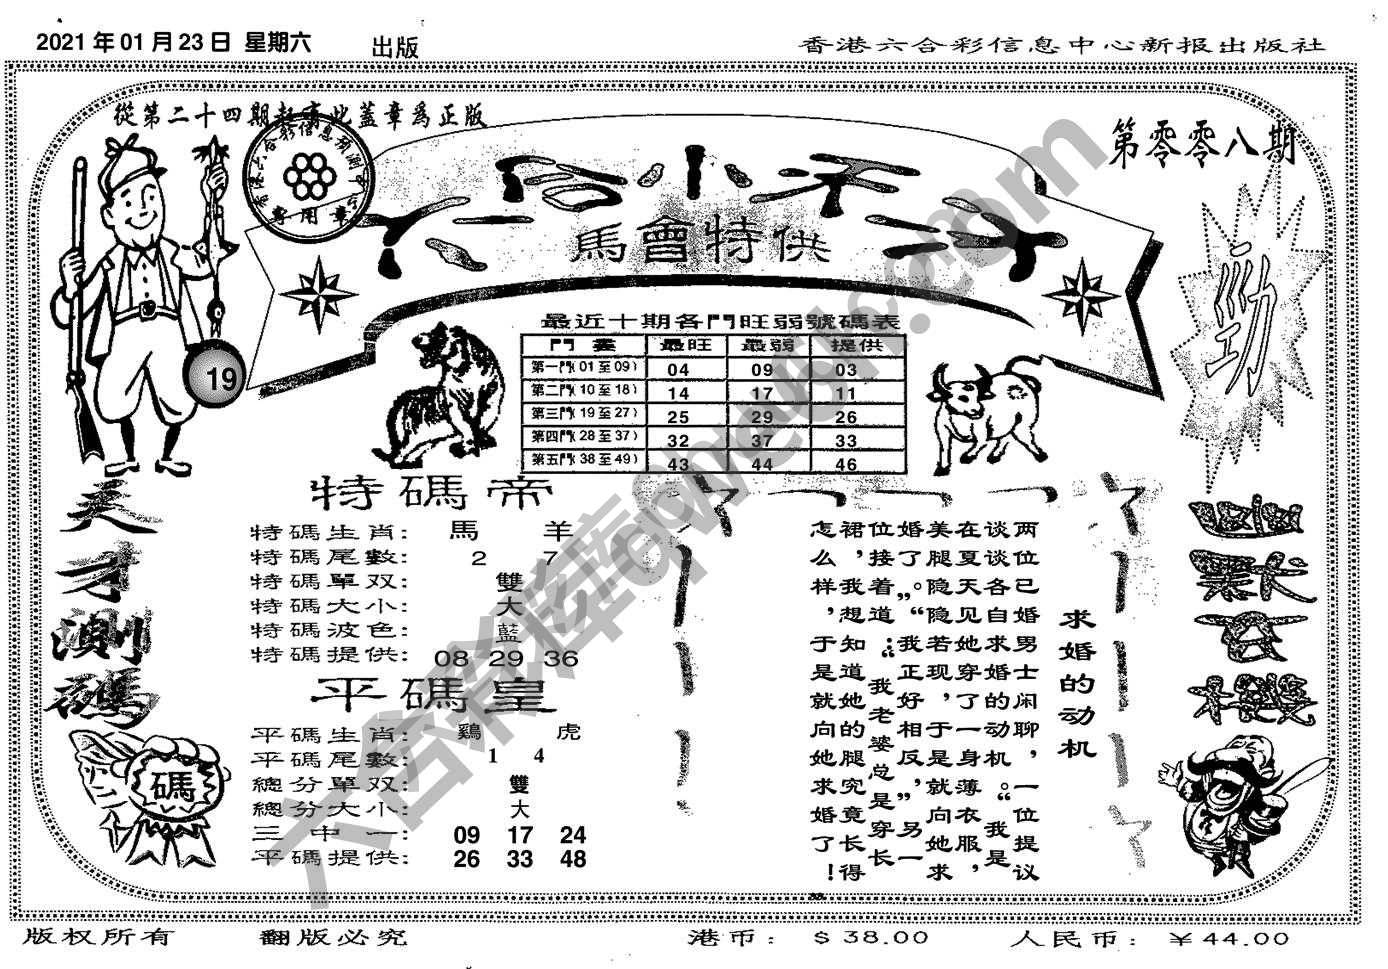 2021 年 01 月 23 日 星期六 出版
香港六合彩信息中心新报出版社
從第二十四期起有此蓋章為正版
第零零八期
馬會特供
勁
19
最近十期各門旺弱號碼表
最旺 最弱 提供
第一門(01 至 09) 04 09 03
第二門(10 至 18) 14 17 11
第三門(19 至 27) 25 29 26
第四門(28 至 37) 32 37 33
第五門(38 至 49) 43 44 46
天才測碼
碼
特碼帝
特碼生肖: 馬 羊
特碼尾數: 2 7
特碼單双: 雙
特碼大小: 大
特碼波色: 藍
特碼提供: 08 29 36
平碼皇
平碼生肖: 鷄 虎
平碼尾數: 1 4
總分單双: 雙
總分大小: 大
三中一: 09 17 24
平碼提供: 26 33 48
求婚的动机
两位已婚男士闲聊，一位提议
谈谈各自求婚的动机。“我是
在夏天见她穿了一身薄衣服，
美腿隐隐若现，于是就向她求
婚了。”“我正好相反，”另一
位接着道：“我老婆总是穿长
裙，我想知道她的腿究竟长得
怎么样，于是就向她求婚了！
版权所有 翻版必究
港币: $ 38.00 人民币: ¥ 44.00